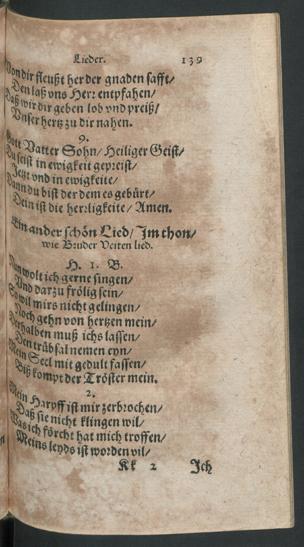 Lieder. 139
Von dir fleußt her der gnaden safft/
Den laß vns Herr entpfahen/
Daß wir dir geben lob vnd preiß/
Vnser hertz zu dir nahen.
9.
Gott Vatter Sohn/ Heiliger Geist/
Du seist in ewigkeit gepreist/
Jetzt vnd in ewigkeite/
Dann du bist der dem es gebürt/
Dein ist die herrligkeite/ Amen.
Ein ander schön Lied/ Jm thon/
wie Bruder Veiten lied.
H. 1. B.
Nun wolt ich gerne singen/
Vnd darzu frölig sein/
So wil mirs nicht gelingen/
Noch gehn von hertzen mein/
Derhalben muß ichs lassen/
Den trübsal nemen eyn/
Mein Seel mit gedult fassen/
Biß kompt der Tröster mein.
2.
Mein Harpff ist mir zerbrochen/
Daß sie nicht klingen wil/
Was ich förcht hat mich troffen/
Meins leyds ist worden vil/
Kk 2 Jch